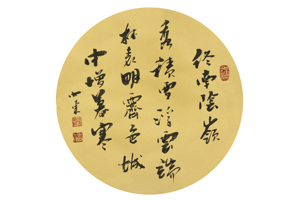 終南陰嶺
秀積雪浮雲端
林表明霽色城
中增暮寒